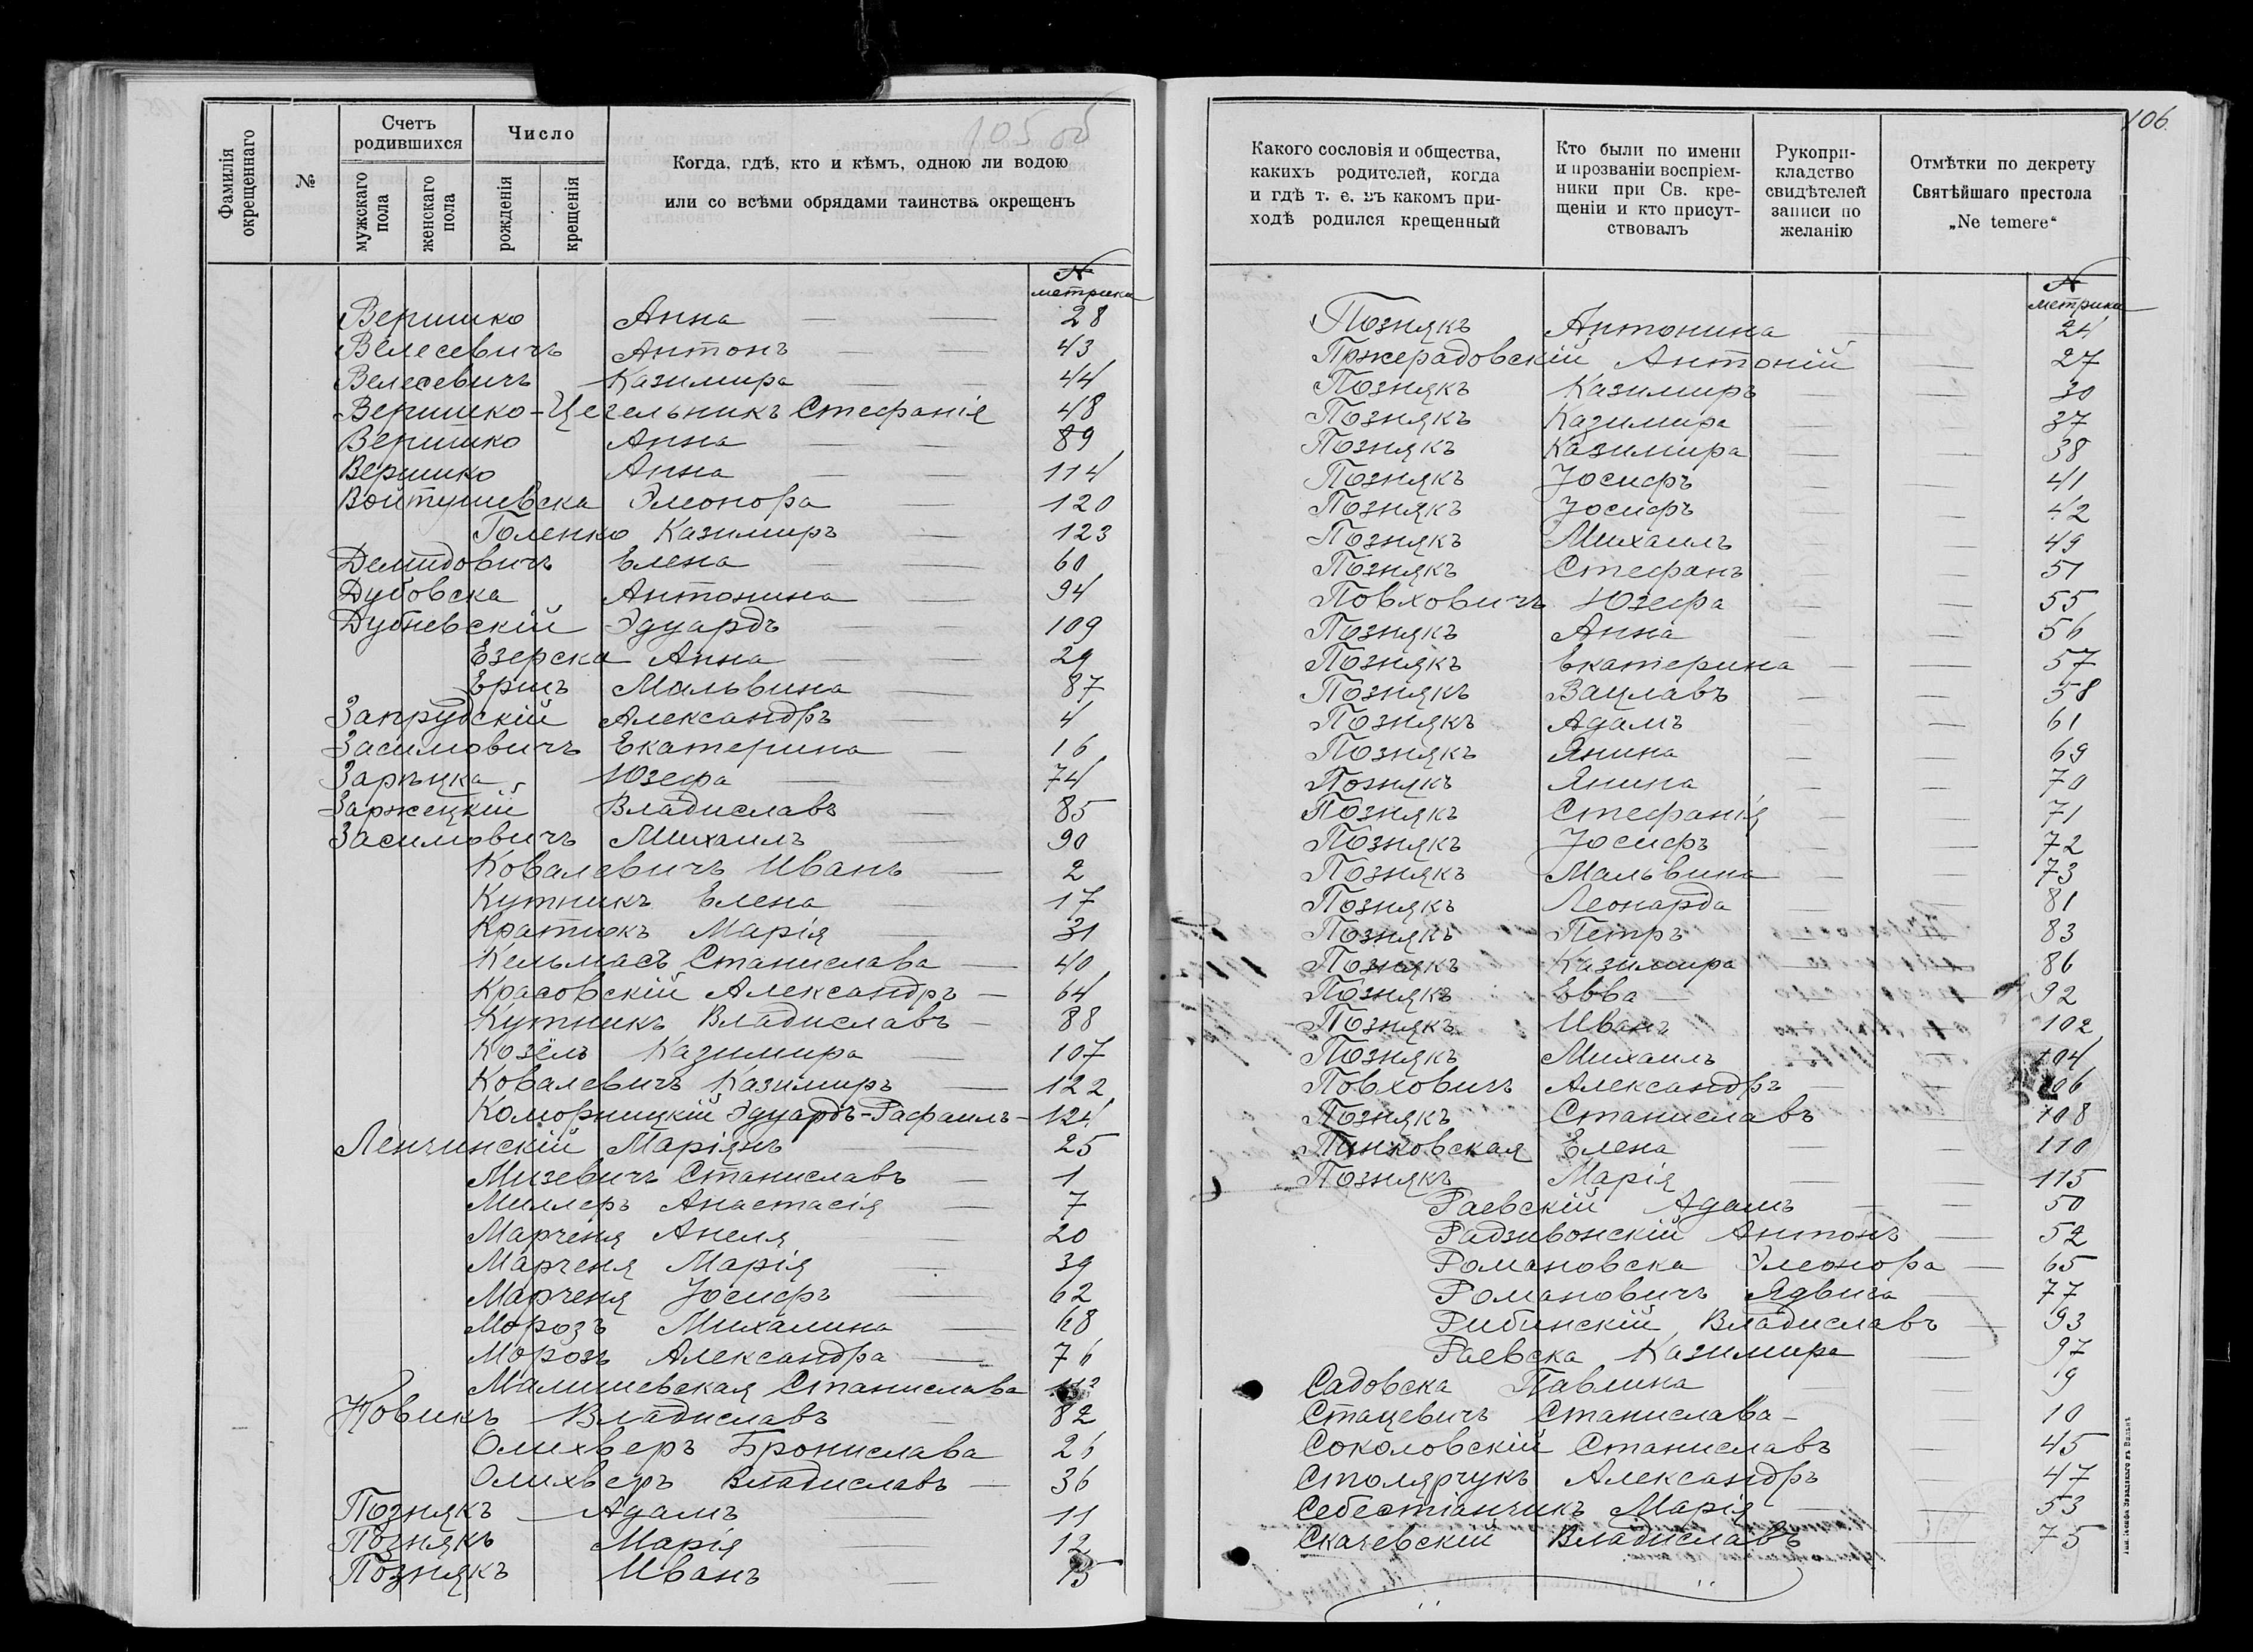 105 об
106.
Фамилія окрещеннаго
№
Счетъ родившихся
мужскаго пола
женскаго пола
Число
рожденія
крещенія
Когда, гдѣ, кто и кѣмъ, одною ли водою
или со всѣми обрядами таинства окрещенъ
№ метрики
Вершико Анна 28
Велесевичъ Антонъ 43
Велесевичъ Казимира 44
Вершико-Цегельникъ Стефанія 48
Вершико Анна 89
Вершико Анна 114
Войтушевска Элеонора 120
Голенко Казимиръ 123
Демидовичъ Елена 60
Дубовска Антонина 94
Дубневскій Эдуардъ 109
Езерска Анна 29
Ериъ Мальвина 87
Запрудскій Александръ 4
Засимовичъ Екатерина 16
Зарѣцка Юзефа 74
Заржецкій Владиславъ 85
Засимовичъ Михаилъ 90
Ковалевичъ Иванъ 2
Кутникъ Елена 17
Кратюкъ Марія 31
Кельмасъ Станислава 40
Красовскій Александръ 64
Кутникъ Владиславъ 88
Козёлъ Казимира 107
Ковалевичъ Казимиръ 122
Коморницкій Эдуардъ-Рафаилъ 124
Ленчинскій Маріянъ 25
Мизевичъ Станиславъ 1
Миллеръ Анастасія 7
Марченя Анеля 20
Марченя Марія 39
Марченя Іосифъ 62
Морозъ Михалина 68
Морозъ Александра 76
Малишевская Станислава
Новикъ Владиславъ 82
Олихверъ Бронислава 26
Олихверъ Владиславъ 36
Познякъ Адамъ 11
Познякъ Марія 12
Познякъ Иванъ 15
Какого сословія и общества,
какихъ родителей, когда
и гдѣ т. е. въ какомъ при-
ходѣ родился крещенный
Кто были по имени
и прозваніи воспріем-
ники при Св. кре-
щеніи и кто присут-
ствовалъ
Рукопри-
кладство
свидѣтелей
записи по
желанію
Отмѣтки по декрету
Святѣйшаго престола
„Ne temere“
№ метрики
Познякъ Антонина 24
Пожерадовскій Антоній 27
Познякъ Казимиръ 30
Познякъ Казимира 37
Познякъ Казимира 38
Познякъ Іосифъ 41
Познякъ Іосифъ 42
Познякъ Михаилъ 49
Познякъ Стефанъ 51
Повховичъ Юзефа 55
Познякъ Анна 56
Познякъ Екатерина 57
Познякъ Вацлавъ 58
Познякъ Адамъ 61
Познякъ Янина 69
Познякъ Янина 70
Познякъ Стефанія 71
Познякъ Іосифъ 72
Познякъ Мальвина 73
Познякъ Леонарда 81
Познякъ Петръ 83
Познякъ Казимира 86
Познякъ Евва 92
Познякъ Иванъ 102
Познякъ Михаилъ 104
Повховичъ Александръ 106
Познякъ Станиславъ 108
Пинковская Елена 110
Познякъ Марія 115
Раевскій Адамъ 50
Радзивонскій Антонъ 52
Романовска Элеонора 65
Романовичъ Ядвига 77
Рибинскій Владиславъ 93
Раевска Казимира 97
Садовска Павлина 9
Стацевичъ Станислава 10
Соколовскій Станиславъ 45
Столярчукъ Александръ 47
Себестіанчикъ Марія 53
Скачевскій Владиславъ 75